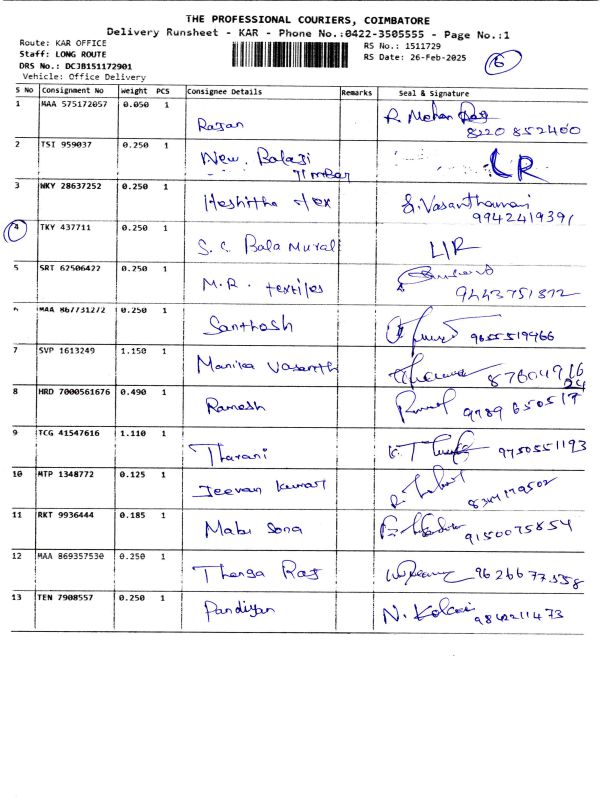 THE PROFESSIONAL COURIERS, COIMBATORE
Delivery Runsheet - KAR - Phone No.:0422-3505555 - Page No.:1
Route: KAR OFFICE
RS No.: 1511729
Staff: LONG ROUTE
RS Date: 26-Feb-2025
DRS No.: DCJB151172901
Vehicle: Office Delivery
S No Consignment No Weight PCS Consignee Details Remarks Seal & Signature
1 MAA 575172057 0.050 1 Rajan R. Mohan Raj
8220 852400
2 TSI 959037 0.250 1 New. Balaji LR
Timber
3 WKY 28637252 0.250 1 Heshitha tex S. Vasanthamani
9942419391
4 TKY 437711 0.250 1 S. C. Bala Murali L/R
5 SRT 62506422 0.250 1 M.R. textiles
9443751872
6 MAA 867731272 0.250 1 Santhosh 9655519466
7 SVP 1613249 1.150 1 Manika Vasanth
8 HRD 7000561676 0.490 1 Ramesh 9789 650517
9 TCG 41547616 1.110 1 Tharani 9750551193
10 MTP 1348772 0.125 1 Jeevan Kumar
11 RKT 9936444 0.185 1 Mabi Sona 9150075854
12 MAA 869357530 0.250 1 Thenga Raj 9626677558
13 TEN 7908557 0.250 1 Pandiyan N. 9842211473